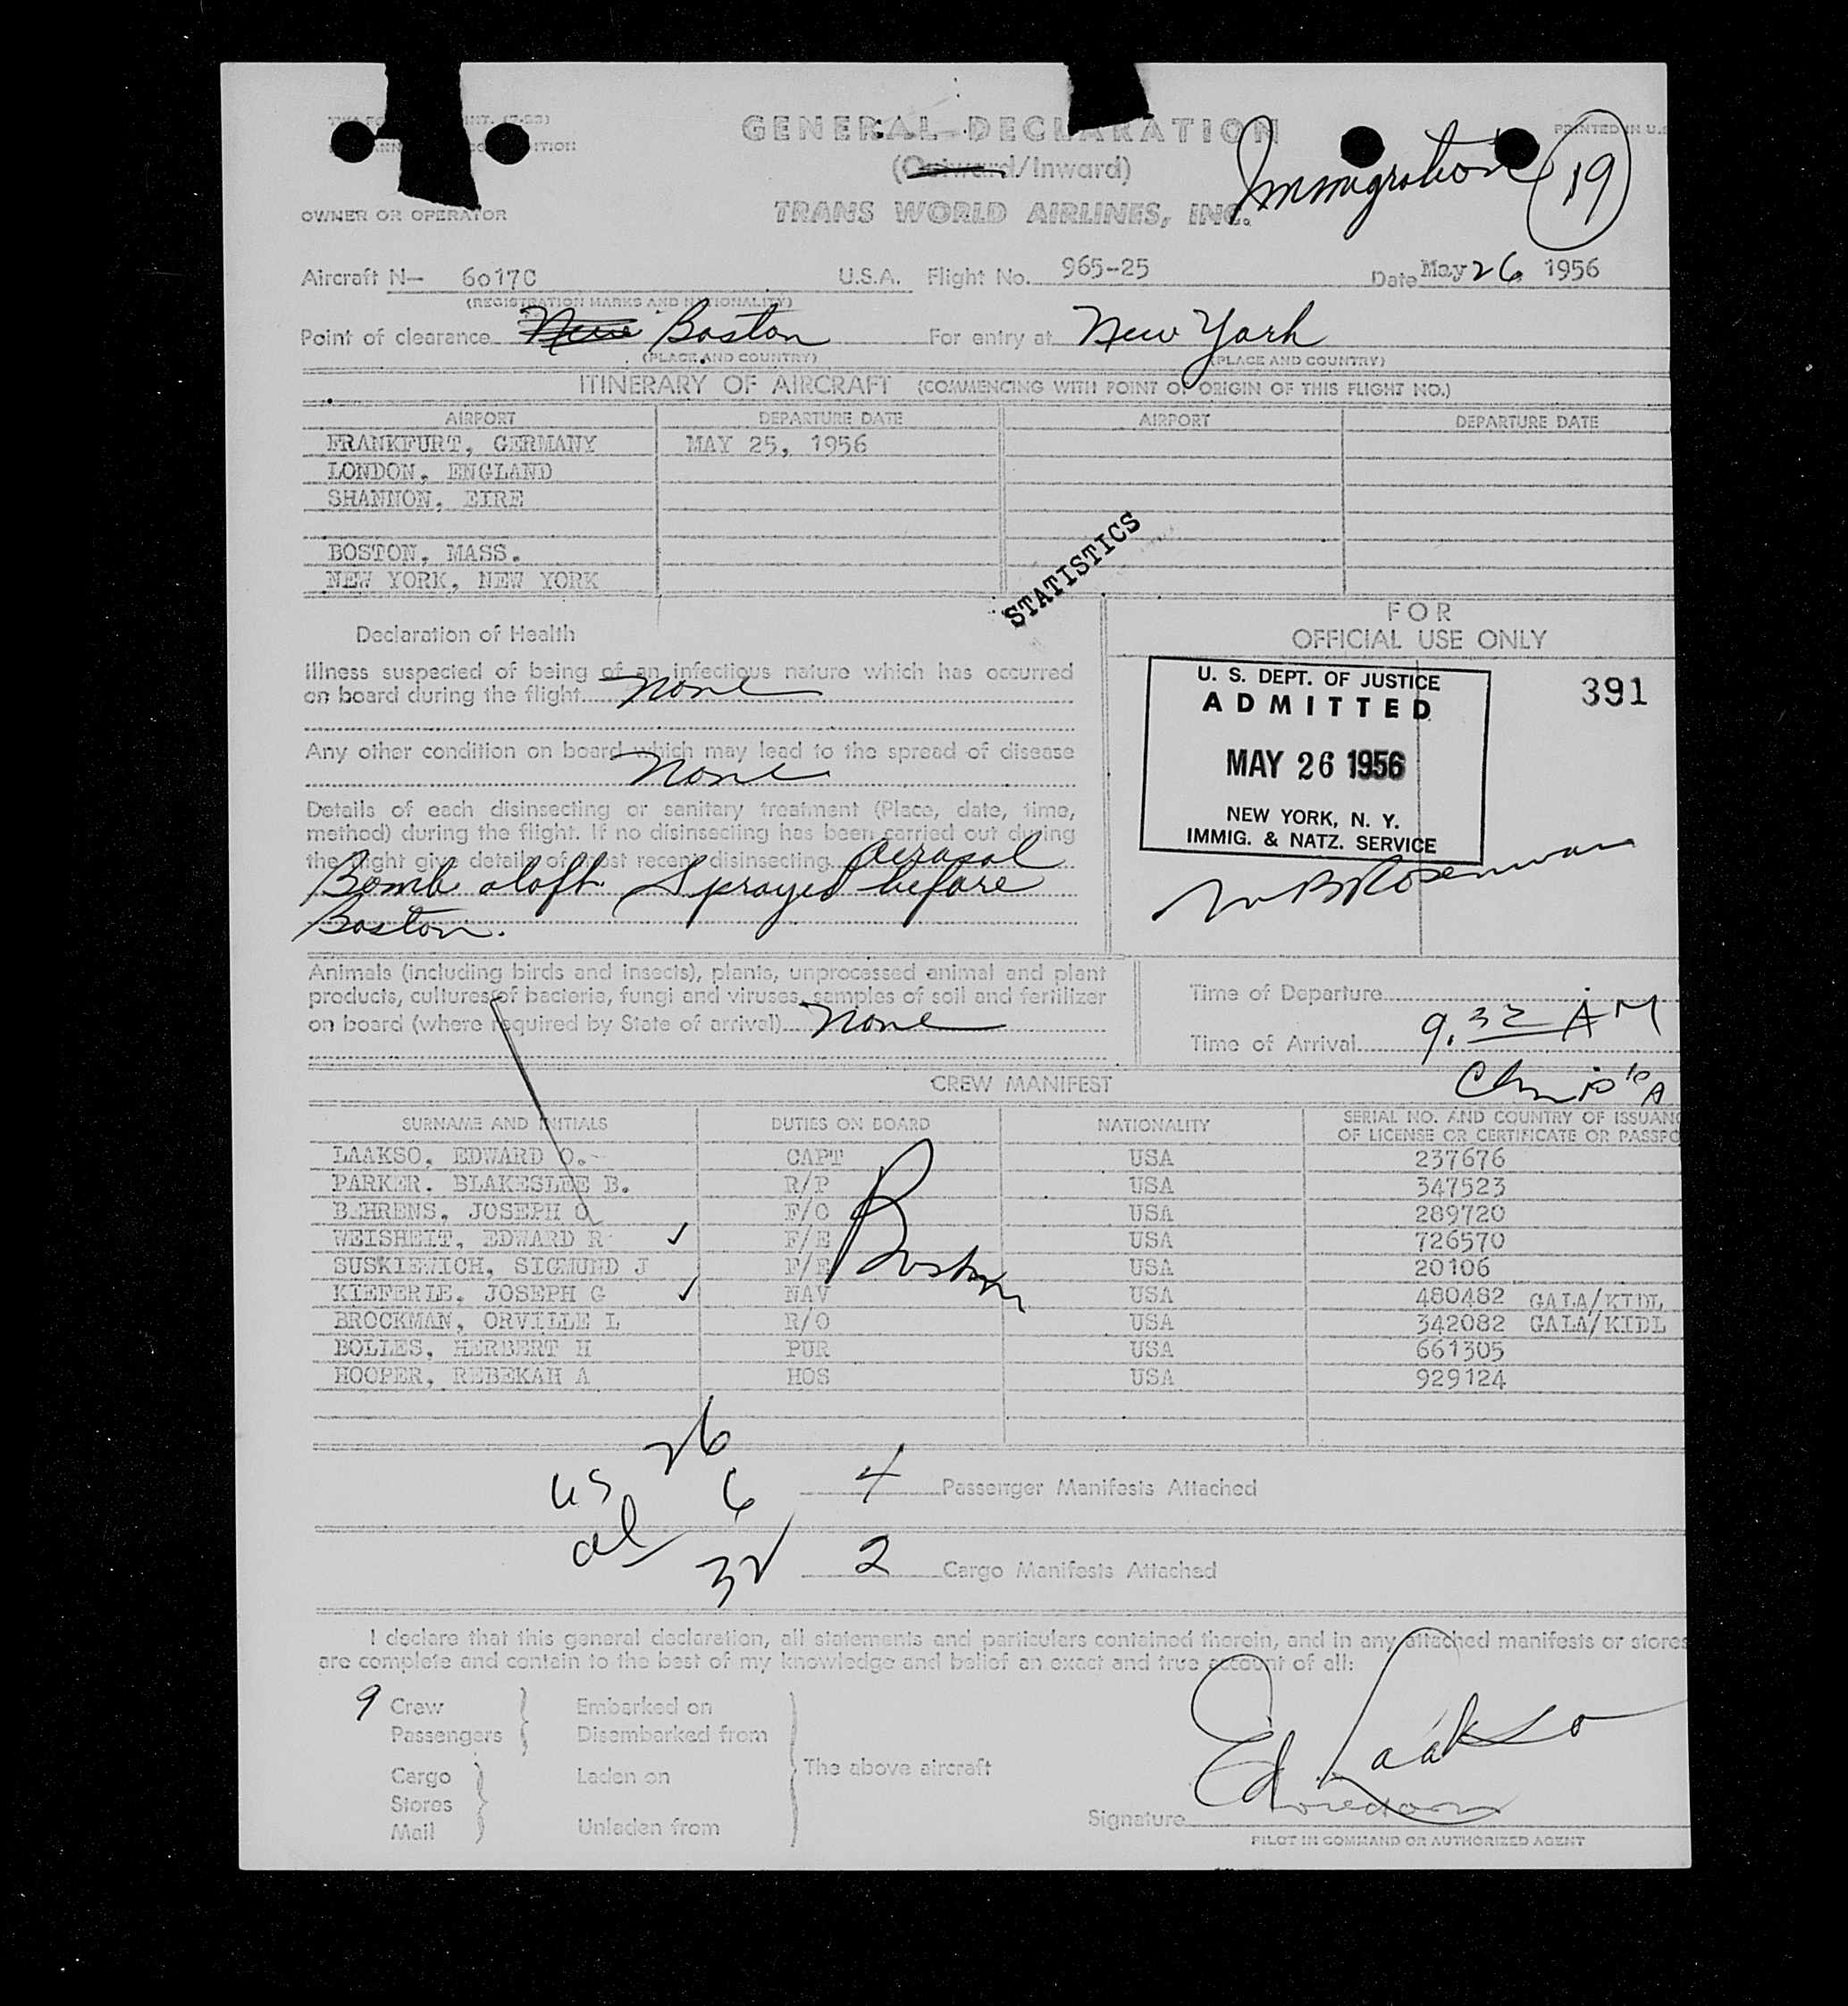 GENERAL DECLARATION
(Outward/Inward)
TRANS WORLD AIRLINES, INC.
Immigration 19
PRINTED IN U.S
OWNER OR OPERATOR
Aircraft N— 6017C U.S.A. Flight No. 965-25 Date May 26 1956
(REGISTRATION MARKS AND NATIONALITY)
Point of clearance New Boston For entry at New York
(PLACE AND COUNTRY) (PLACE AND COUNTRY)
ITINERARY OF AIRCRAFT (COMMENCING WITH POINT OF ORIGIN OF THIS FLIGHT NO.)
AIRPORT DEPARTURE DATE AIRPORT DEPARTURE DATE
FRANKFURT, GERMANY MAY 25, 1956
LONDON, ENGLAND
SHANNON, EIRE
BOSTON, MASS.
NEW YORK, NEW YORK
STATISTICS
Declaration of Health
Illness suspected of being of an infectious nature which has occurred
on board during the flight None
Any other condition on board which may lead to the spread of disease
None
Details of each disinsecting or sanitary treatment (Place, date, time,
method) during the flight. If no disinsecting has been carried out during
the flight give details of most recent disinsecting Aerosol
Bomb aloft Sprayed before
Boston.
FOR
OFFICIAL USE ONLY
U. S. DEPT. OF JUSTICE
ADMITTED
MAY 26 1956
NEW YORK, N. Y.
IMMIG. & NATZ. SERVICE
391
Animals (including birds and insects), plants, unprocessed animal and plant
products, cultures of bacteria, fungi and viruses, samples of soil and fertilizer
on board (where required by State of arrival) None
Time of Departure
Time of Arrival 9.32 AM
CREW MANIFEST
SURNAME AND INITIALS DUTIES ON BOARD NATIONALITY SERIAL NO. AND COUNTRY OF ISSUANC
OF LICENSE OR CERTIFICATE OR PASSPO
LAAKSO, EDWARD O. CAPT USA 237676
PARKER. BLAKESLEE B. R/P USA 347523
BEHRENS, JOSEPH O F/O USA 289720
WEISHEIT, EDWARD R F/E USA 726570
SUSKIEWICH, SIGMUND J F/E USA 20106
KIEFERLE, JOSEPH G NAV USA 480482 GALA/KIDL
BROCKMAN, ORVILLE L R/O USA 342082 GALA/KIDL
BOLLES, HERBERT H PUR USA 661305
HOOPER, REBEKAH A HOS USA 929124
Boston
US 26
al 6
32
4 Passenger Manifests Attached
2 Cargo Manifests Attached
I declare that this general declaration, all statements and particulars contained therein, and in any attached manifests or stores
are complete and contain to the best of my knowledge and belief an exact and true account of all:
9 Crew Embarked on
Passengers Disembarked from
The above aircraft
Cargo Laden on
Stores
Mail Unladen from
Ed Laakso
Signature
PILOT IN COMMAND OR AUTHORIZED AGENT